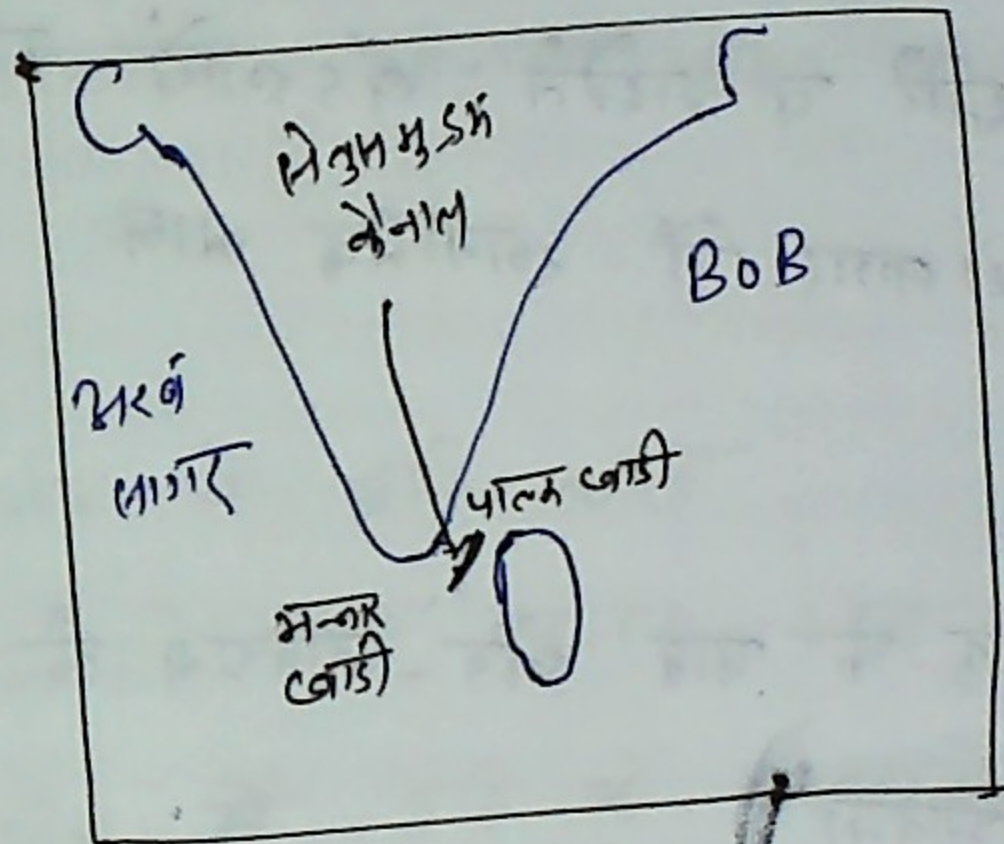 सेतुसमुद्रम
कैनाल
BOB
अरब
सागर
पाल्क खाडी
मन्नार
खाडी